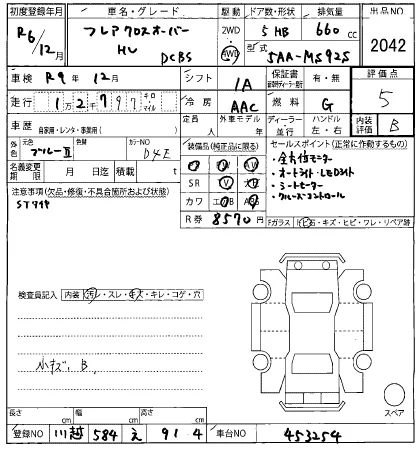 初度登録年月 車名・グレード 駆動 ドア数・形状 排気量 出品NO
R6/12月 フレアクロスオーバー 2WD 5 HB 660 cc 2042
HV DCBS 4WD 型式 5AA-MS92S
車検 R9年12月 シフト IA 保証書 新車時ディーラー発行 有・無 評価点
走行 1万2千797 キロ マイル 冷房 AAC 燃料 G 5
車歴 自家用・レンタ・事業用( ) 定員 人 外車モデル 年 ディーラー 並行 ハンドル 左・右 内装 B
元色 ブルーⅡ 色替 カラーNO D4E 装備品(純正品に限る) セールスポイント(正常に作動するもの)
名義変更期限 月 日迄 積載 t ・全方位モニター
SR ・オートライト・LEDライト
注意事項(欠品・修復・不具合箇所および状態) カワ ・シートヒーター
R券 8570円 ・クルーズコントロール
Fガラス トビ石・キズ・ヒビ・ワレ・リペア跡
検査員記入 内装 汚レ・スレ・キズ・キレ・コゲ・穴
小キズ、B
長さ cm 幅 cm 高さ cm スペア
登録NO 川越 584 え 914 車台NO 453254